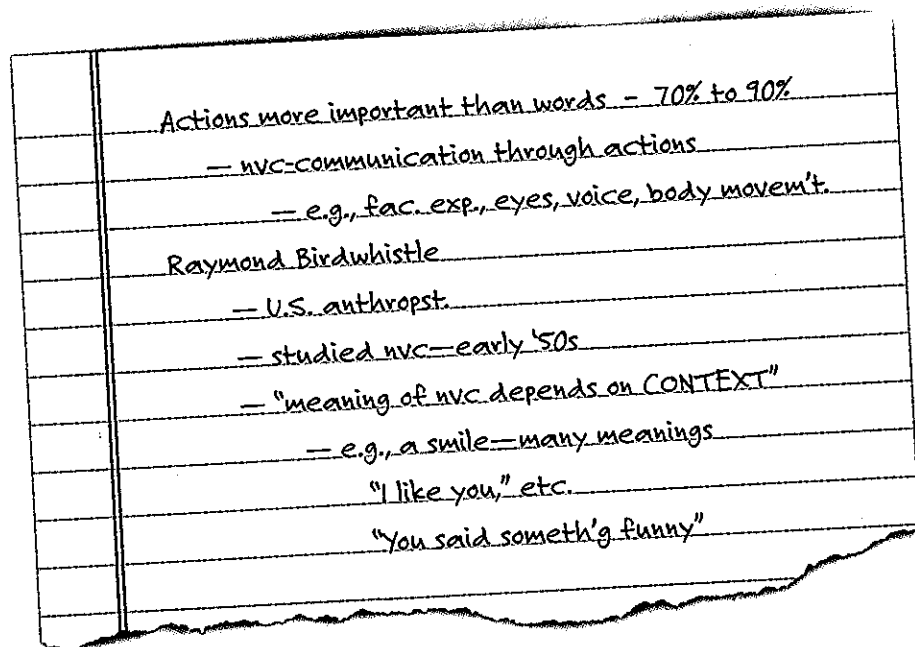 Actions more important than words - 70% to 90%
— nvc-communication through actions
— e.g., fac. exp., eyes, voice, body movem't.
Raymond Birdwhistle
— U.S. anthropst.
— studied nvc—early '50s
— "meaning of nvc depends on CONTEXT"
— e.g., a smile—many meanings
"I like you," etc.
"You said someth'g funny"